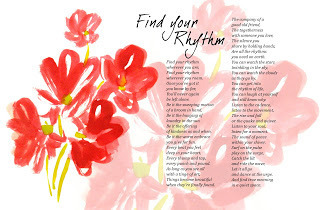 Find your
Rhythm
Find your rhythm
wherever you are,
Find your rhythm
wherever you roam,
Once you've got it
you know by far
You'll never again
be left alone.
Be it the sweeping motion
of a broom in hand,
Be it the hanging of
laundry in the sun,
Be it the offering
of kindness to and when,
Be it the warm embrace
you give for fun.
Every beat you feel
deep in your heart,
Every thump and tap,
every punch and pound,
As long as you smell
with a tinge of art,
Things become beautiful
when they're finally found.
The company of
good old friend,
The togetherness
with someone love,
The silence you
share by holding hands,
Are all the rhythms
you need on earth.
You can watch the stars
twinkling in the sky,
You can watch the clouds
as they go by,
You can get into
the rhythm of life,
You can laugh at your self
and still know why.
Listen to the in-hence,
listen to the movement,
The rise and fall
or the quake and quiver,
Listen to your name,
listen for a moment,
The sound of peace
within your shiver.
Feel on the pulse
play on the surge,
Catch the lit
and ride the wave,
Let it all go
and dance at the urge,
And find true harmony
in a quiet space.